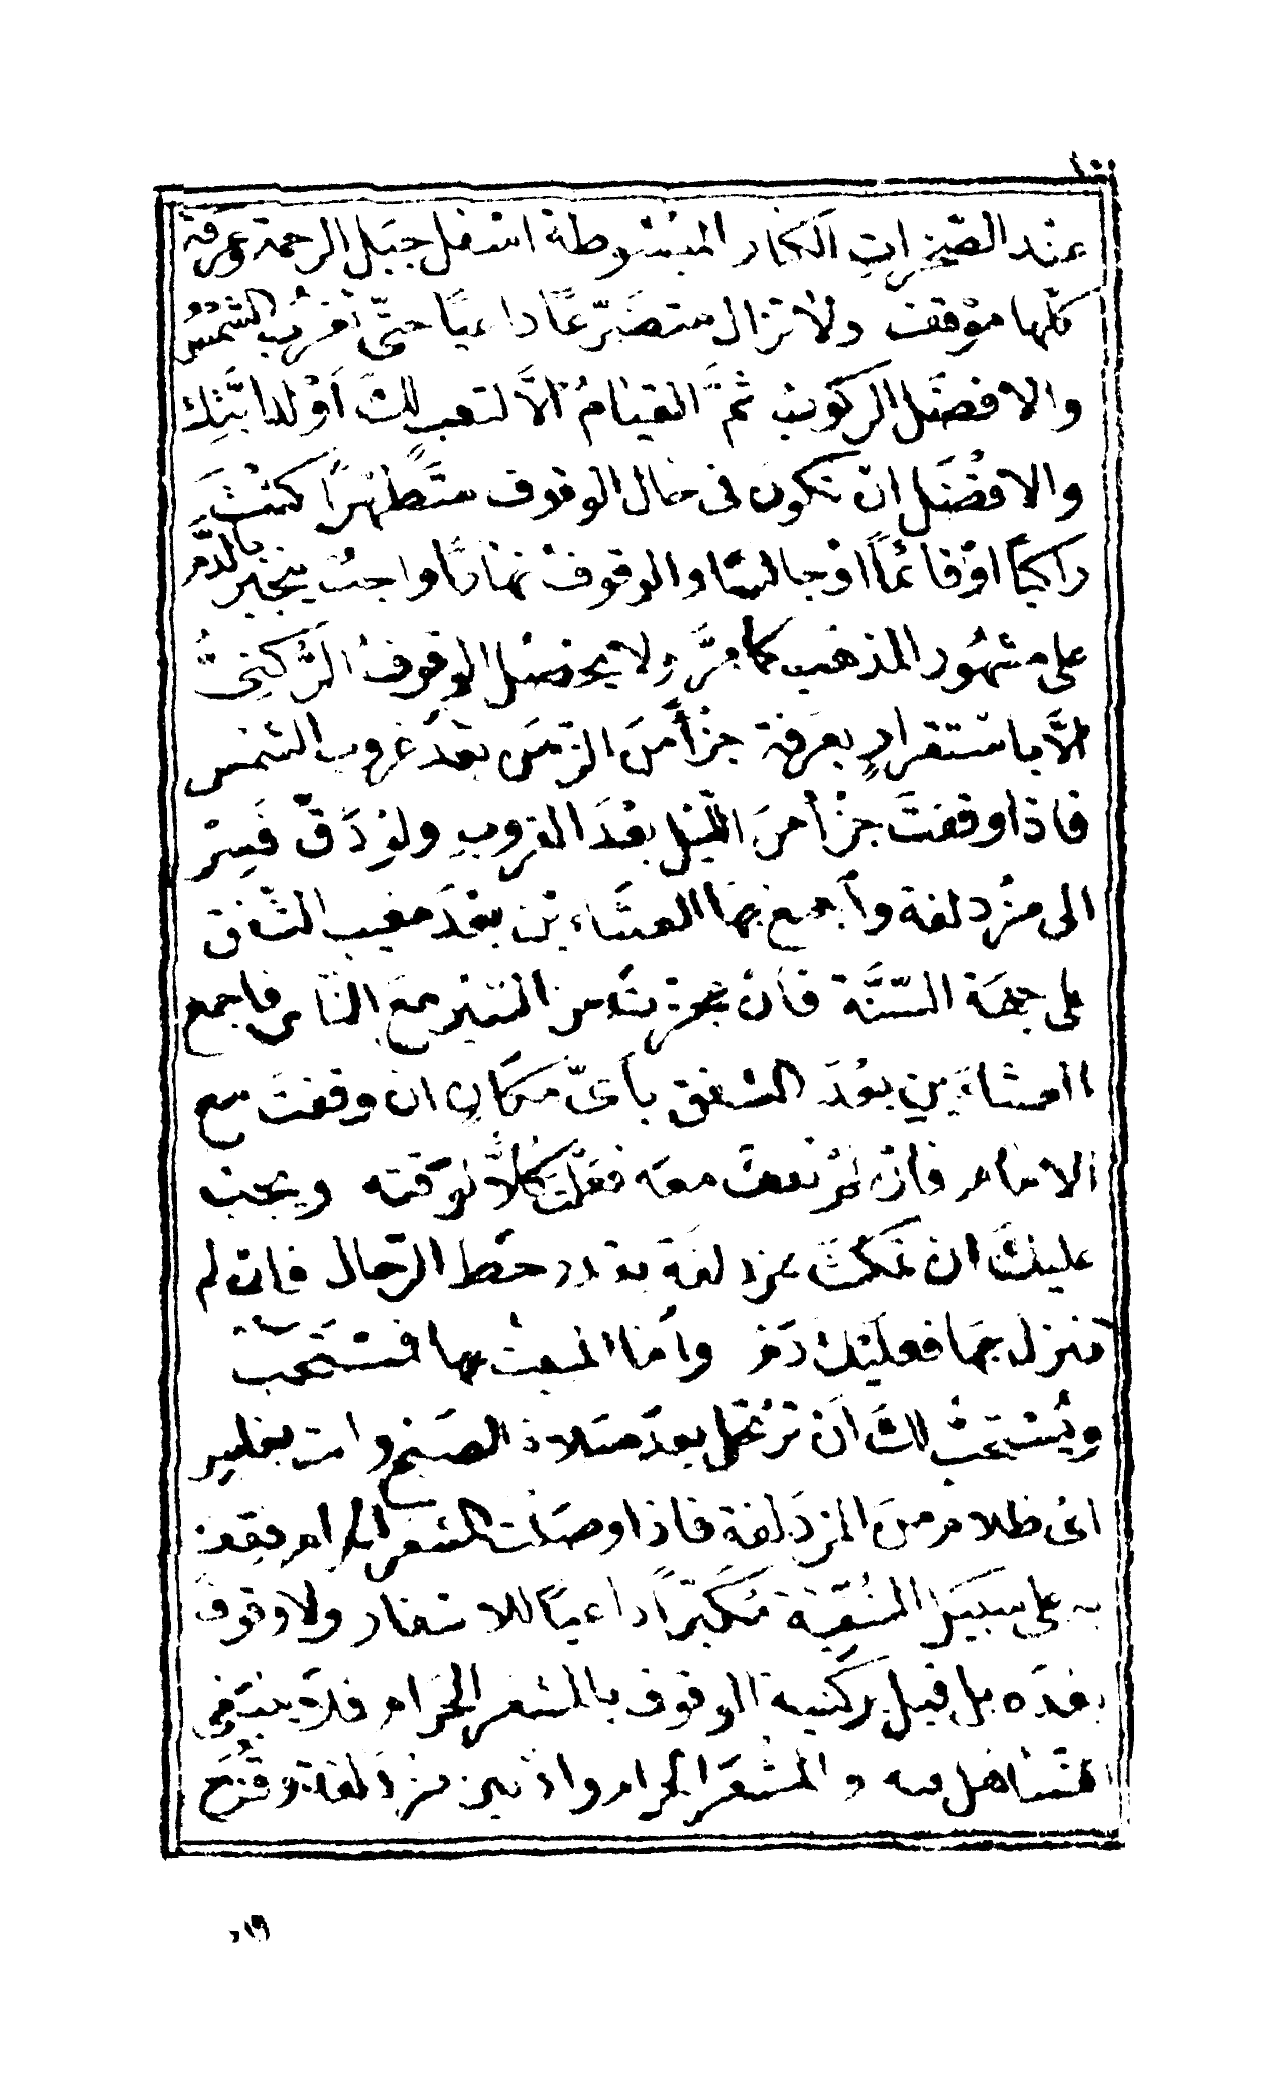 ١٠٠
عند الصّخرات الكبار المبسُوطة اسْفل جبَل الرحمة وعرفة
كلّها موْقفٌ ولا تزال متضَرّعًا داعيًا حتّى تغرُب الشّمْسُ
والافضَل الركوبُ ثمَّ القيَامُ الاَّ لتعبٍ لكَ اَوْ لدابَّتِك
والافضَل ان تكون فى حال الوقوف متَطهّرًا كنْتَ
راكبًا اوْ قائمًا اوْ جالسًا والوقوفُ نهارًا واجبٌ ينجبر بالدَّم
على مشهُور المذهب كما مرَّ ولا يحْصل الوقوفُ الرُّكنِىُّ
الاَّ باسْتقرارٍ بعَرفة جزْأً منَ الزّمَن بعْدَ غروب الشمس
فاذا وقفتَ جزْأ منَ اللّيْل بعْدَ الغروبِ ولوْ دَقَّ فَسِرْ
الى مزْدلفة وأجمعْ بهَا العشَاءيْن بعْدَ مغيب الشّفق
على جهَة السّنَّة فانْ عجزتَ عن السَيْر معَ النَّاس فاجمع
العشاءَين بعْدَ الشفق بأىّ مكَانٍ انْ وقفتَ مع
الامَام فان لمْ تقفْ معَه فعَلْتَ كلاًّ لوقته ويجبُ
عليْكَ ان تمكثَ بمزدلفَة بقدر حطّ الرّحال فان لم
تنزل بهَا فعليْكَ دَمٌ وأمّا المبيتُ بها فمسْتَحَبّ
ويُسْتحَبُّ لكَ اَن ترْتحل بعدَ صَلاة الصّبْح وانت بغلسٍ
اىْ ظلام منَ المزدَلفة فاذا وصَلْت المشعر الحرام فقف
به على سبيل السُّنّية مُكَبّرًا داعيًا للاسْفار ولا وقوفَ
بعْدَه بل قيل بركنية الوقوف بالمشعر الحرَام فلا ينبَغى
التّسَاهل فيه والمشعَر الحرام واد بين مزدَلفة وقُزَح
٠١٩